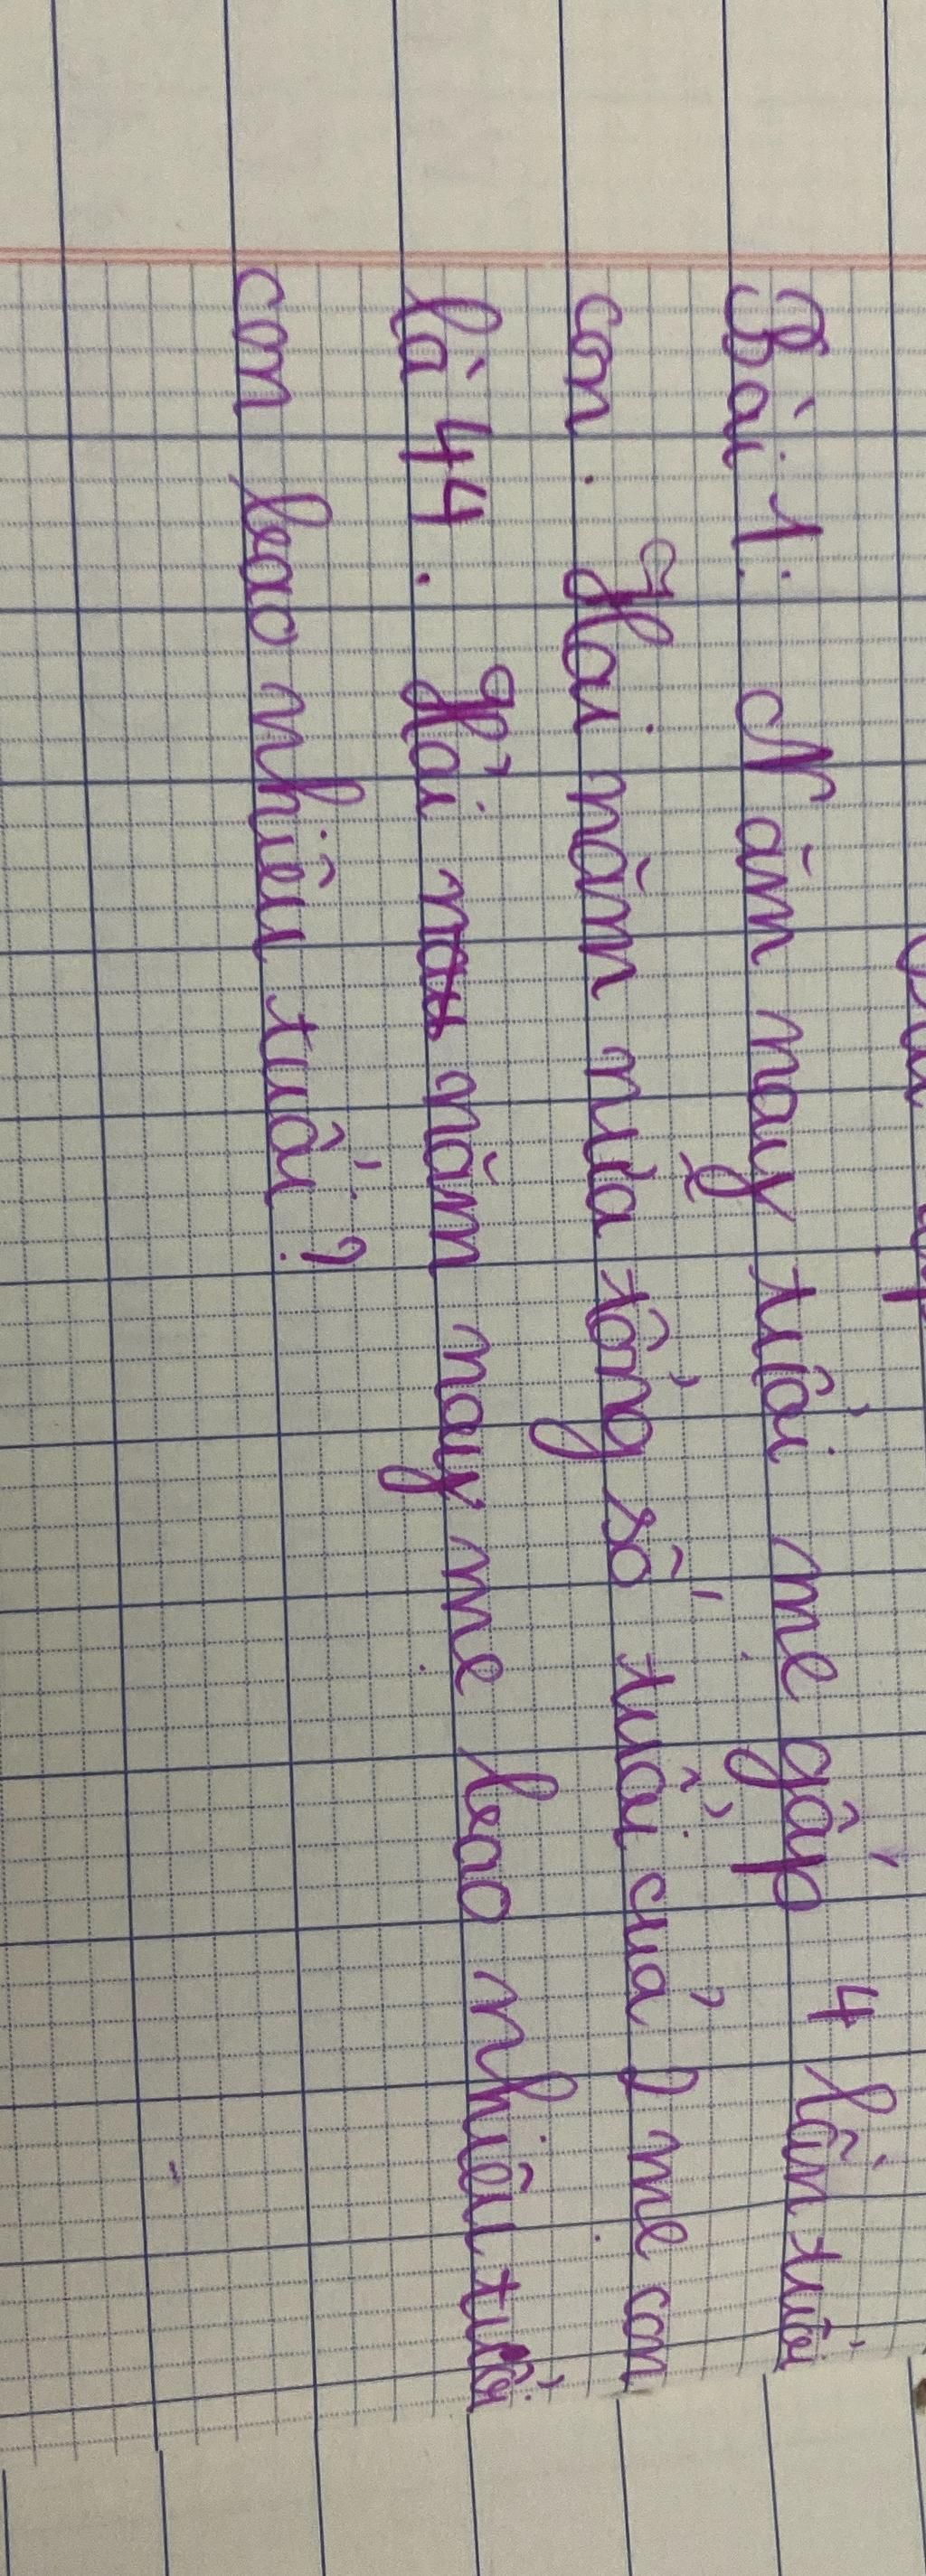 Bài 1: Năm nay tuổi mẹ gấp 4 lần tuổi
con. Hai năm nữa tổng số tuổi của 2 mẹ con
là 44. Hỏi năm nay mẹ bao nhiêu tuổi
con bao nhiêu tuổi?